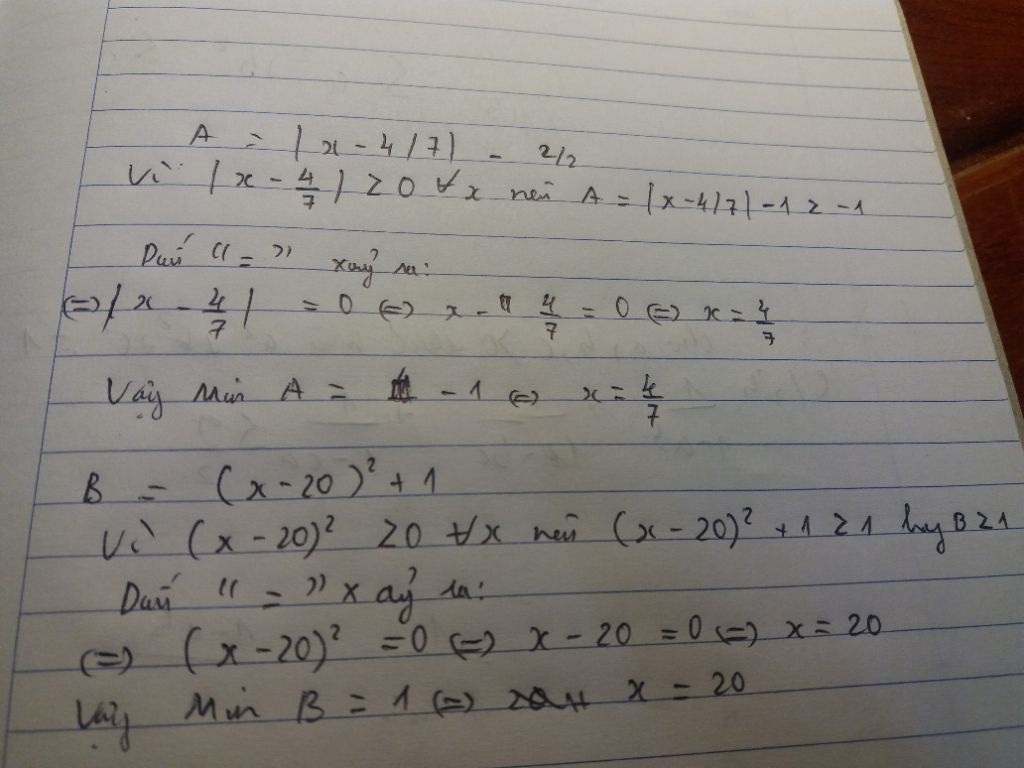 A = |x - 4/7| - 2/2
Vì |x - 4/7| ≥ 0 ∀x nên A = |x-4/7| -1 ≥ -1
Dấu " = " xảy ra:
<=> |x - 4/7| = 0 <=> x - 4/7 = 0 <=> x = 4/7
Vậy Min A = -1 <=> x = 4/7
B = (x-20)² + 1
Vì (x - 20)² ≥ 0 ∀x nên (x - 20)² + 1 ≥ 1 hay B ≥ 1
Dấu " = " xảy ra:
<=> (x - 20)² = 0 <=> x - 20 = 0 <=> x = 20
Vậy Min B = 1 <=> x = 20